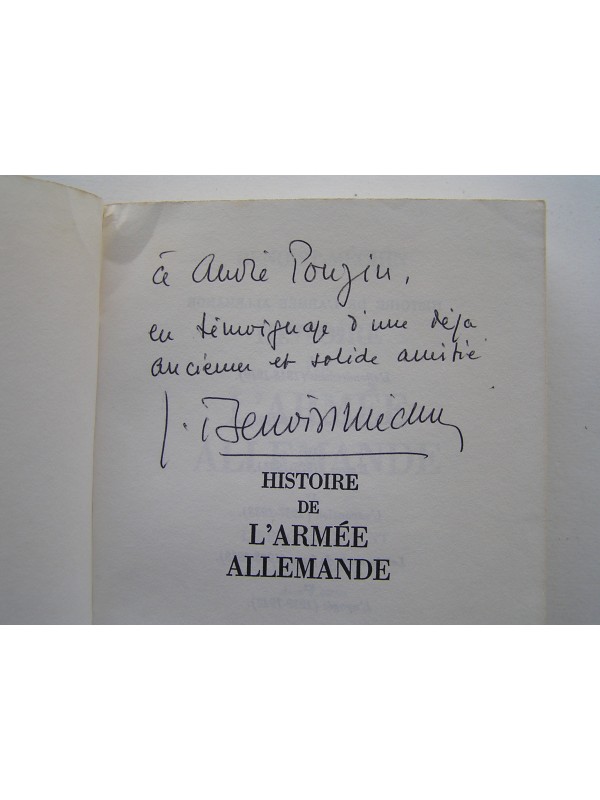 à André Pouzin,
en témoignage d'une déja
ancienne et solide amitié
J. Benoist-Méchin
HISTOIRE
DE
L'ARMÉE
ALLEMANDE